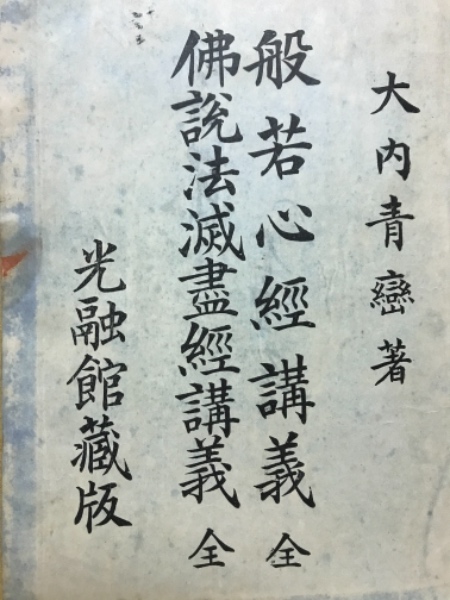 大内青巒著
般若心經講義全
佛説法滅盡經講義全
光融館藏版